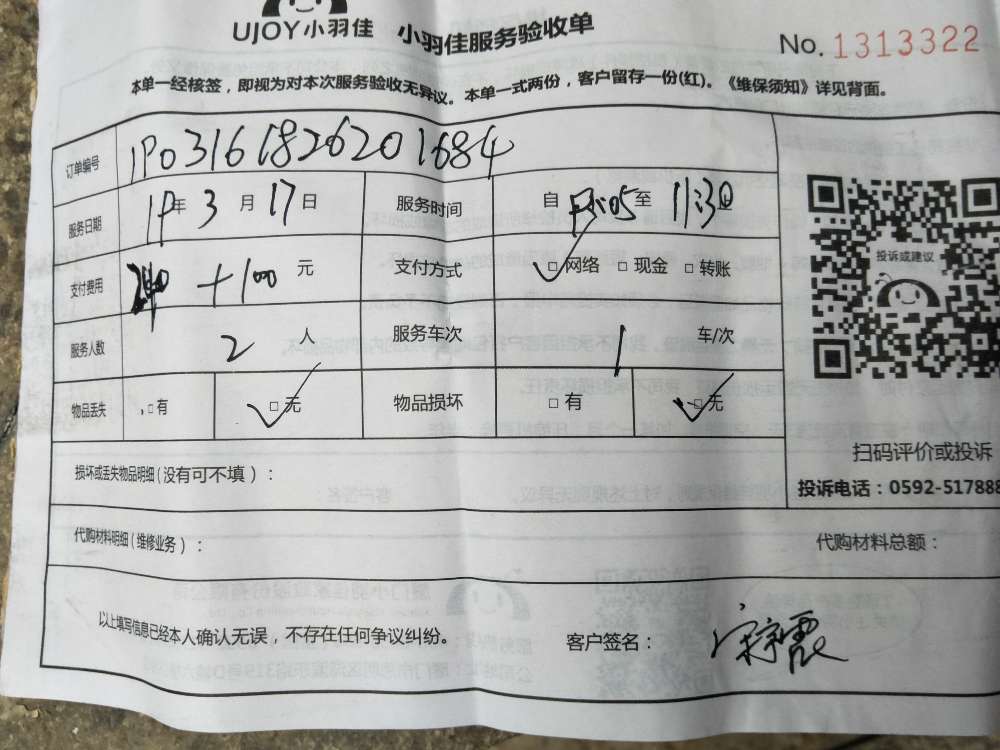 UJOY小羽佳 小羽佳服务验收单
No. 1313322
本单一经核签，即视为对本次服务验收无异议。本单一式两份，客户留存一份(红)。《维保须知》详见背面。
订单编号 1P03161826201684
服务日期 19年 3 月 17 日 服务时间 自 至 11:30
支付费用 +100 元 支付方式 □网络 □现金 □转账
投诉或建议
服务人数 2 人 服务车次 1 车/次
物品丢失 □有 □无 物品损坏 □有 □无
扫码评价或投诉
损坏或丢失物品明细(没有可不填)：
投诉电话：0592-517888
代购材料明细(维修业务)： 代购材料总额：
以上填写信息已经本人确认无误，不存在任何争议纠纷。 客户签名：